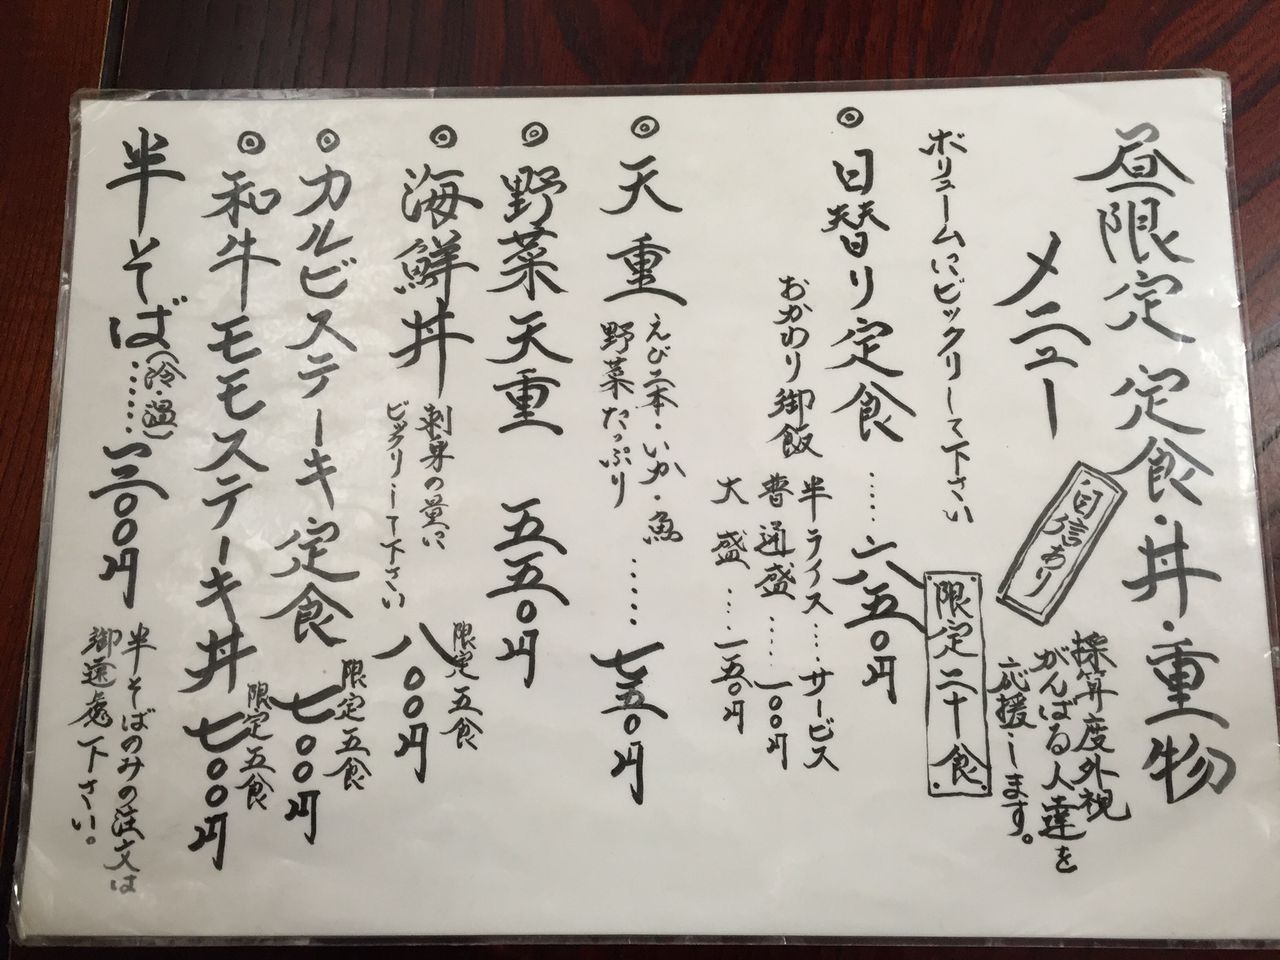 昼限定 定食・丼・重物
メニュー
自信あり
採算度外視
がんばる人達を
応援します。
ボリュームにビックリして下さい
限定二十食
◎日替り定食……六五〇円
おかわり御飯
半ライス…サービス
普通盛……一〇〇円
大盛…一五〇円
◎天重
えび二本・いか・魚
野菜たっぷり
……七五〇円
◎野菜天重 五五〇円
◎海鮮丼
刺身の量に
ビックリして下さい
限定五食
八〇〇円
◎カルビステーキ定食 七〇〇円
限定五食
◎和牛モモステーキ丼 七〇〇円
限定五食
半そば(冷・温)……三〇〇円
半そばのみの注文は
御遠慮下さい。